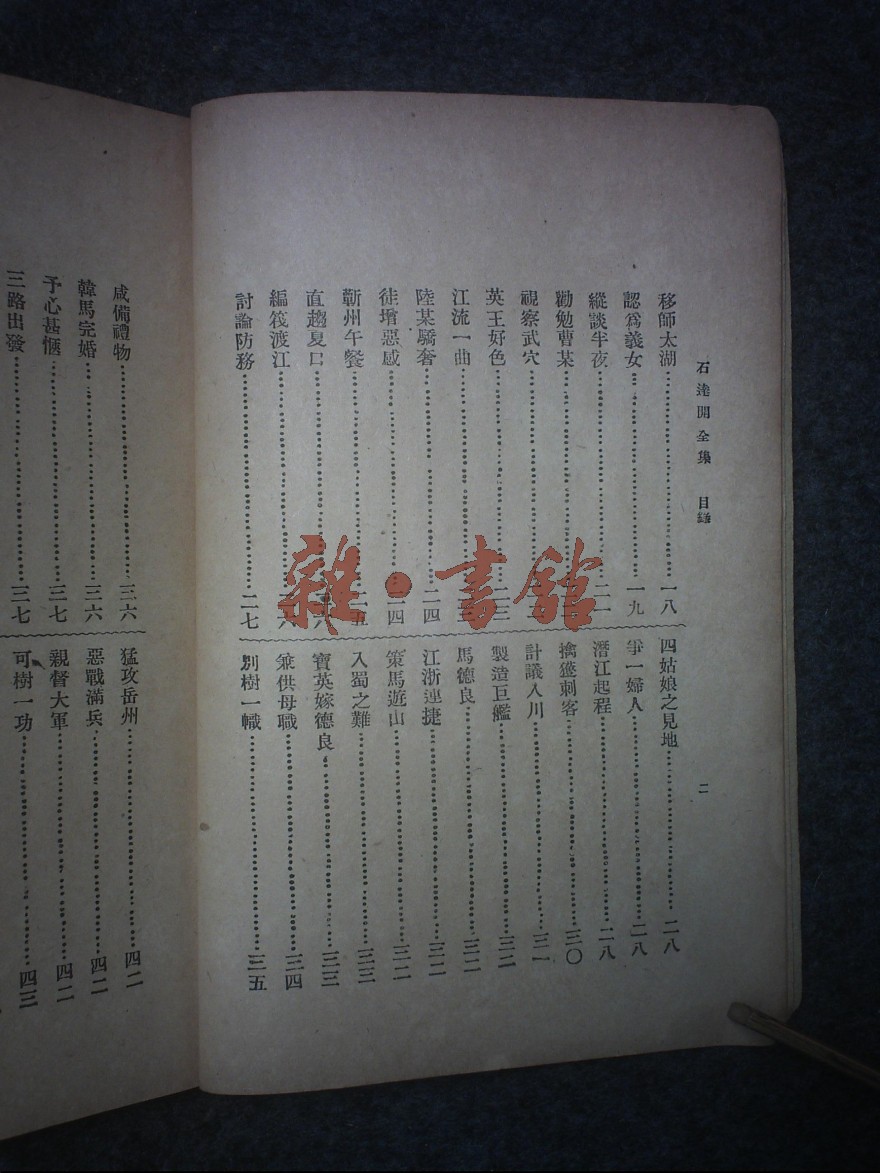 石達開全集 目錄 二
移師太湖……一八
認爲義女……一九
縱談半夜……二一
勸勉曹某……
視察武穴……
英王好色……二三
江流一曲……
陸某驕奢……二四
徒增惡感……二四
蘄州午餐……二五
直趨夏口……二六
編筏渡江……二六
討論防務……二七
四姑娘之見地……二八
爭一婦人……二八
潛江起程……二八
擒獲刺客……三〇
計議入川……三一
製造巨艦……三二
馬德良……三二
江浙連捷……三二
策馬遊山……三二
入蜀之難……三三
寶英嫁德良……三三
兼供母職……三四
別樹一幟……三五
咸備禮物……三六
韓馬完婚……三六
予心甚愜……三七
三路出發……三七
猛攻岳州……四二
惡戰滿兵……四二
親督大軍……四二
可樹一功……四三
雜·書舘